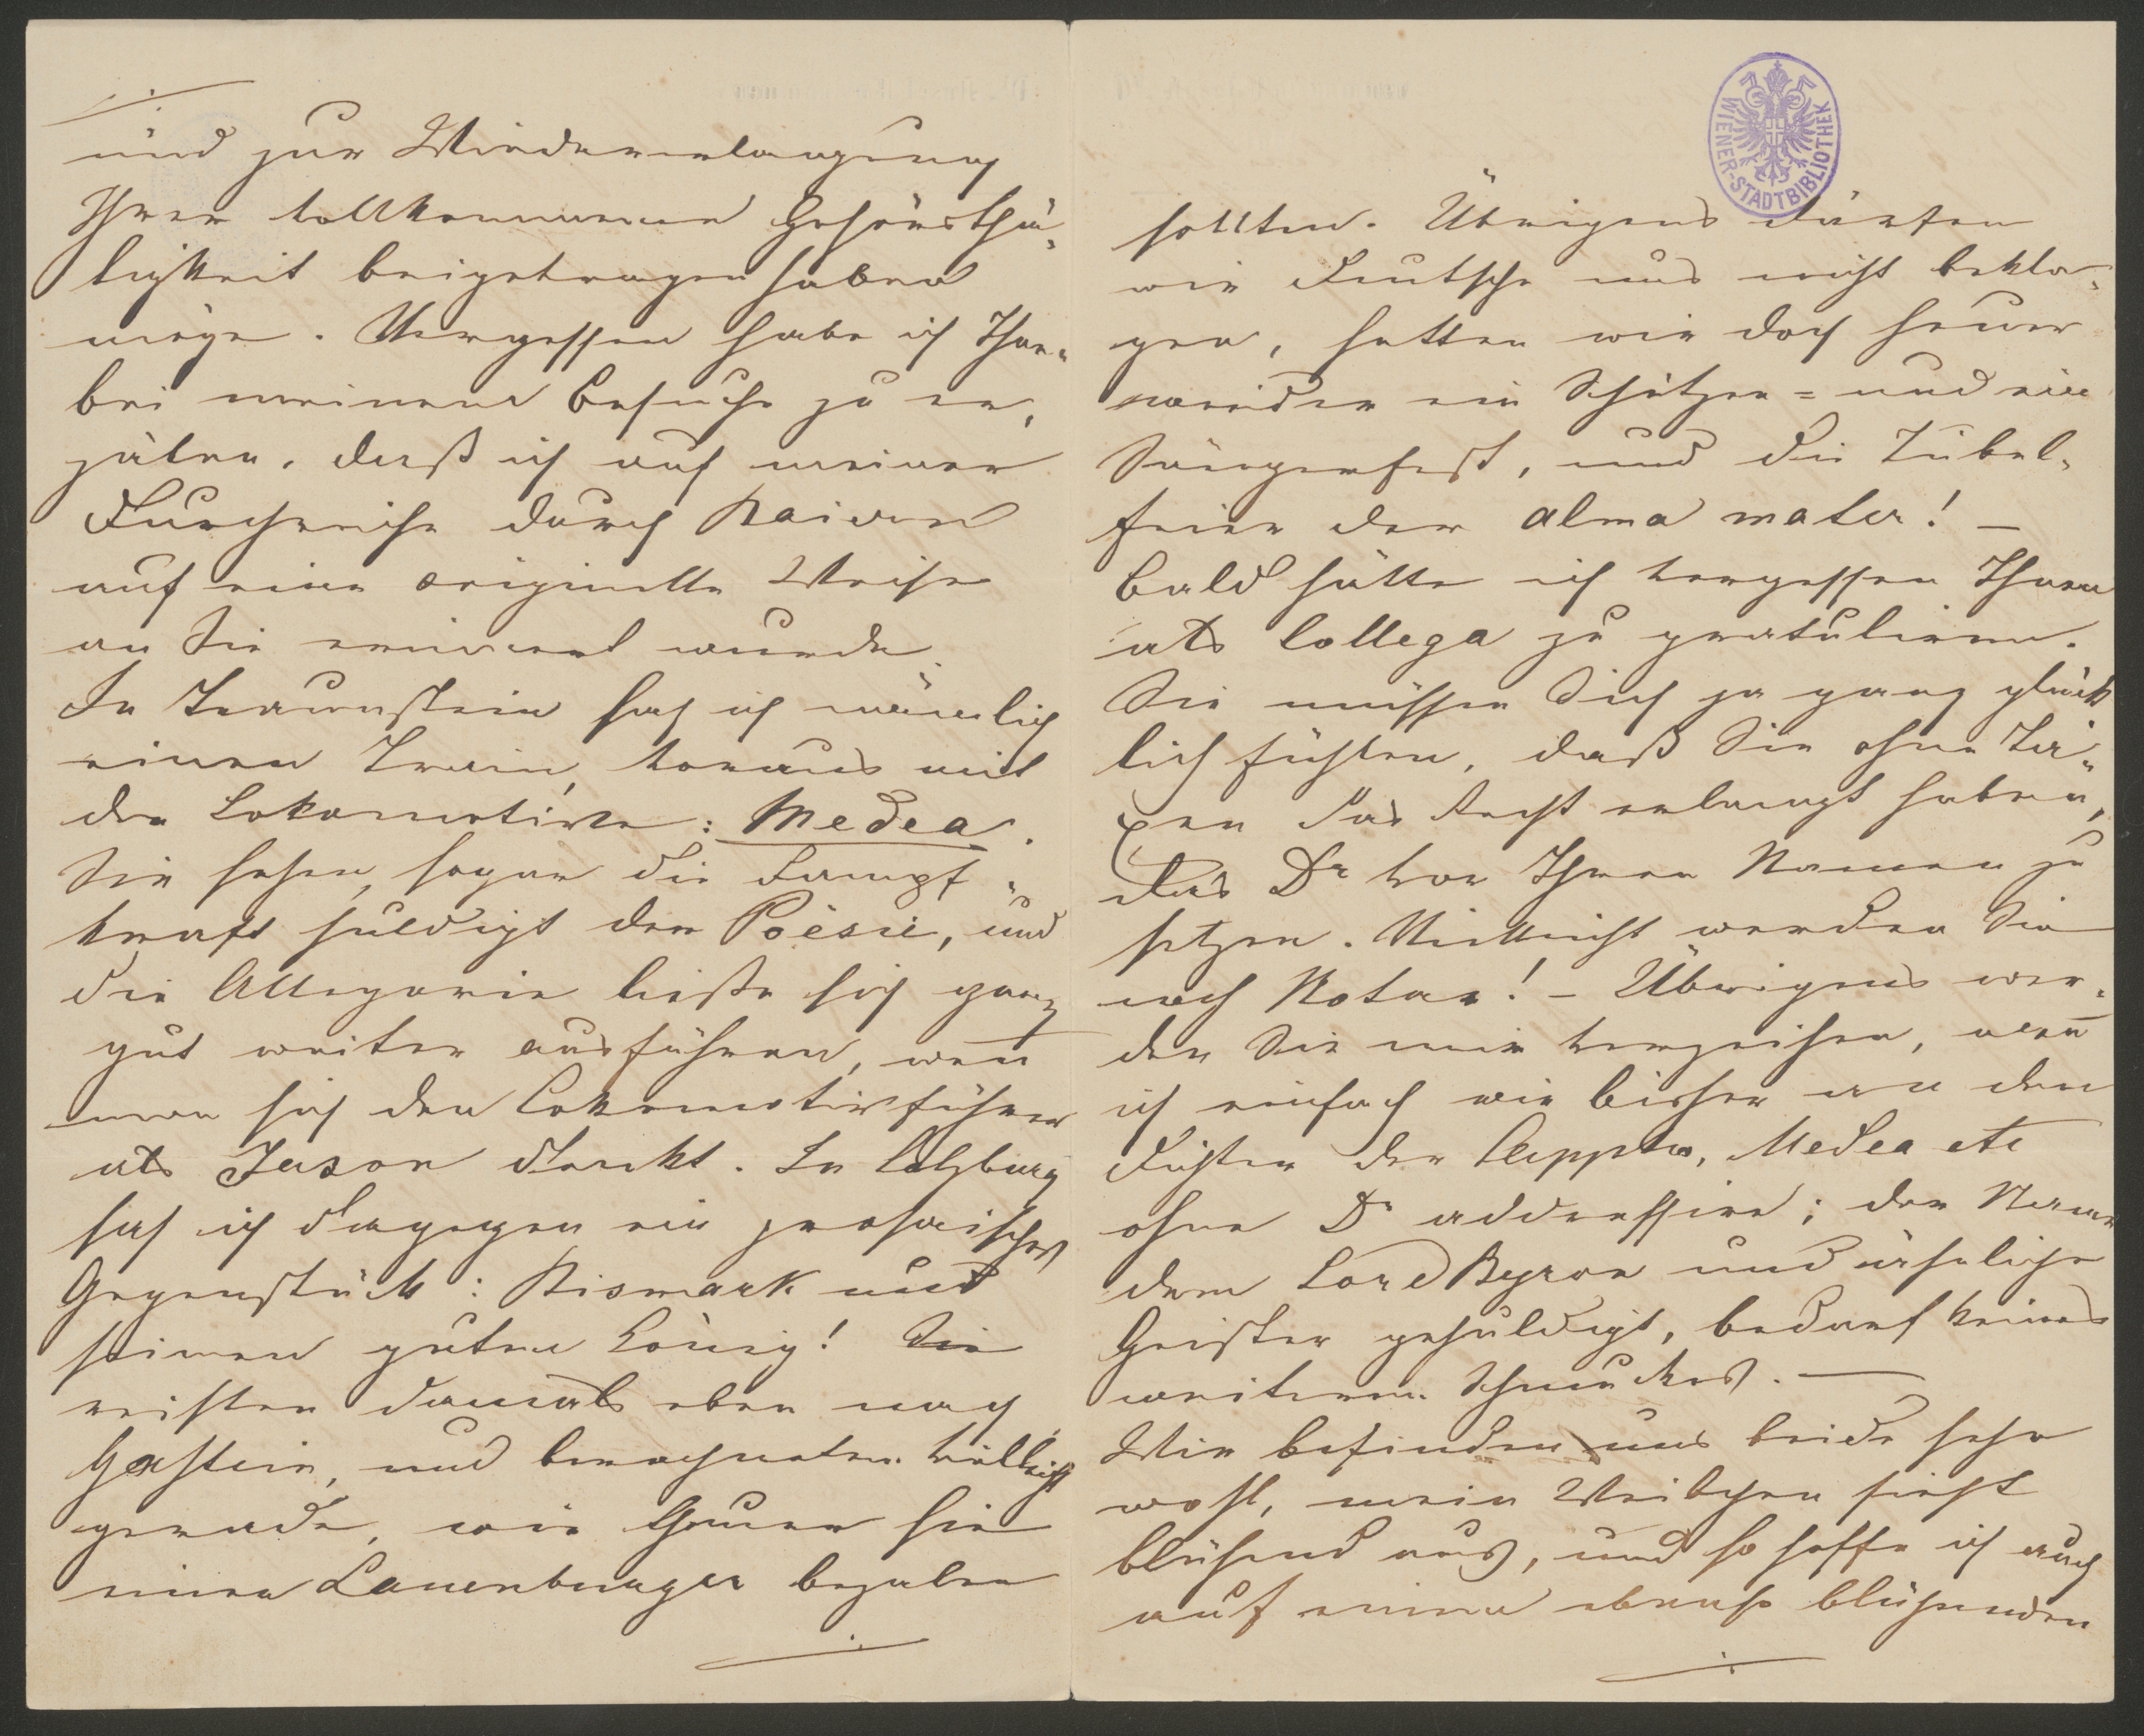 und zur Wiedererlangung
Ihrer vollkommenen Gehörsthä-
tigkeit beigetragen haben
möge. Vergessen habe ich Ihnen
bei meinem Besuche zu er-
zälen, daß ich auf meiner
Durchreise durch Baiern
auf eine originelle Weise
an Sie erinnert wurde.
In Traunstein sah ich nämlich
einen Train, voraus mit
der Lokomotive: Medea.
Sie sehen, sogar die Dampf-
kraft huldigt der Poësie, und
die Allegorie ließe sich ganz
gut weiter ausführen, wen̄
man sich den Lokomotivführer
als Jason denkt. In Salzburg
sah ich dagegen ein prosaisches
Gegenstück: Bismark und
seinen guten König! Sie
reisten damals eben nach
Gastein, und berechneten vielleicht
gerade, wie theuer sie
einen Lauenburger bezalen
sollten. Übrigens dürfen
wir Deutsche uns nicht bekla-
gen, hatten wir doch heuer
wieder ein Schützen- und ein
Sängerfest, und die Jubel-
feier der alma mater! –
Bald hätte ich vergessen Ihnen
als Collega zu gratulieren.
Sie müssen Sich ja ganz glück
lich fühlen, daß Sie ohne Ta-
xen das Recht erlangt haben,
das Dr vor Ihren Namen zu
setzen. Vielleicht werden Sie
noch Notar! – Übrigens wer-
den Sie mir verzeihen, wen̄
ich einfach wie bisher an den
Dichter der Sappho, Medea etc
ohne Dr addressire; der Name
dem Lord Byron und ähnliche
Geister gehuldigt, bedarf keines
weiteren Schmuckes. —
Wir befinden uns beide sehr
wohl, mein Weibchen sieht
blühend aus, und so hoffe ich auch
auf einen ebenso blühenden
WIENER-STADTBIBLIOTHEK